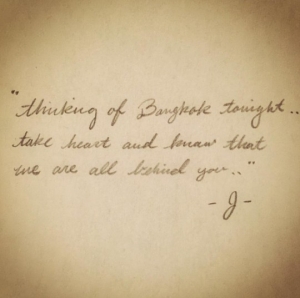 "thinking of Bangkok tonight...
take heart and know that
we are all behind you.."
- J -